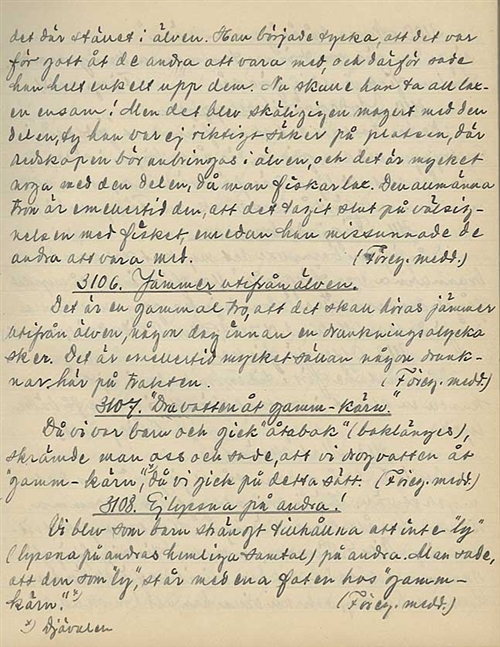 det där stället i älven. Han började tycka, att det var
för gott åt de andra att vara med, och därför sade
han helt enkelt upp dem. Nu skulle han ta all lax-
en ensam! Men det blev skäligen magert med den
delen, ty han var ej riktigt säker på platsen, där
redskapen bör anbringas i älven, och det är mycket
noga med den delen, då man fiskar lax. Den allmänna
tron är emellertid den, att det tagit slut på välsig-
nelsen med fisket, emedan han missunnade de
andra att vara med. (Föreg. medd.)
3106. Jämmer utifrån älven.
Det är en gammal tro, att det skall höras jämmer
utifrån älven, någon dag innan en drunkningsolycka
sker. Det är emellertid mycket sällan någon drunk-
nar här på trakten. (Föreg. medd.)
3107. "Dra vatten åt gamm-kärn."
Då vi var barn och gick "åtabak" (baklänges),
skrämde man oss och sade, att vi drog vatten åt
"gamm-kärn",ˣ) då vi gick på detta sätt. (Föreg. medd.)
3108. Ej lyssna på andra!
Vi blev som barn strängt tillhållna att inte "ly"
(lyssna på andras hemliga samtal) på andra. Man sade,
att den som "ly", står med ena foten hos "gamm-
kärn".ˣ) (Föreg. medd.)
ˣ) Djävulen